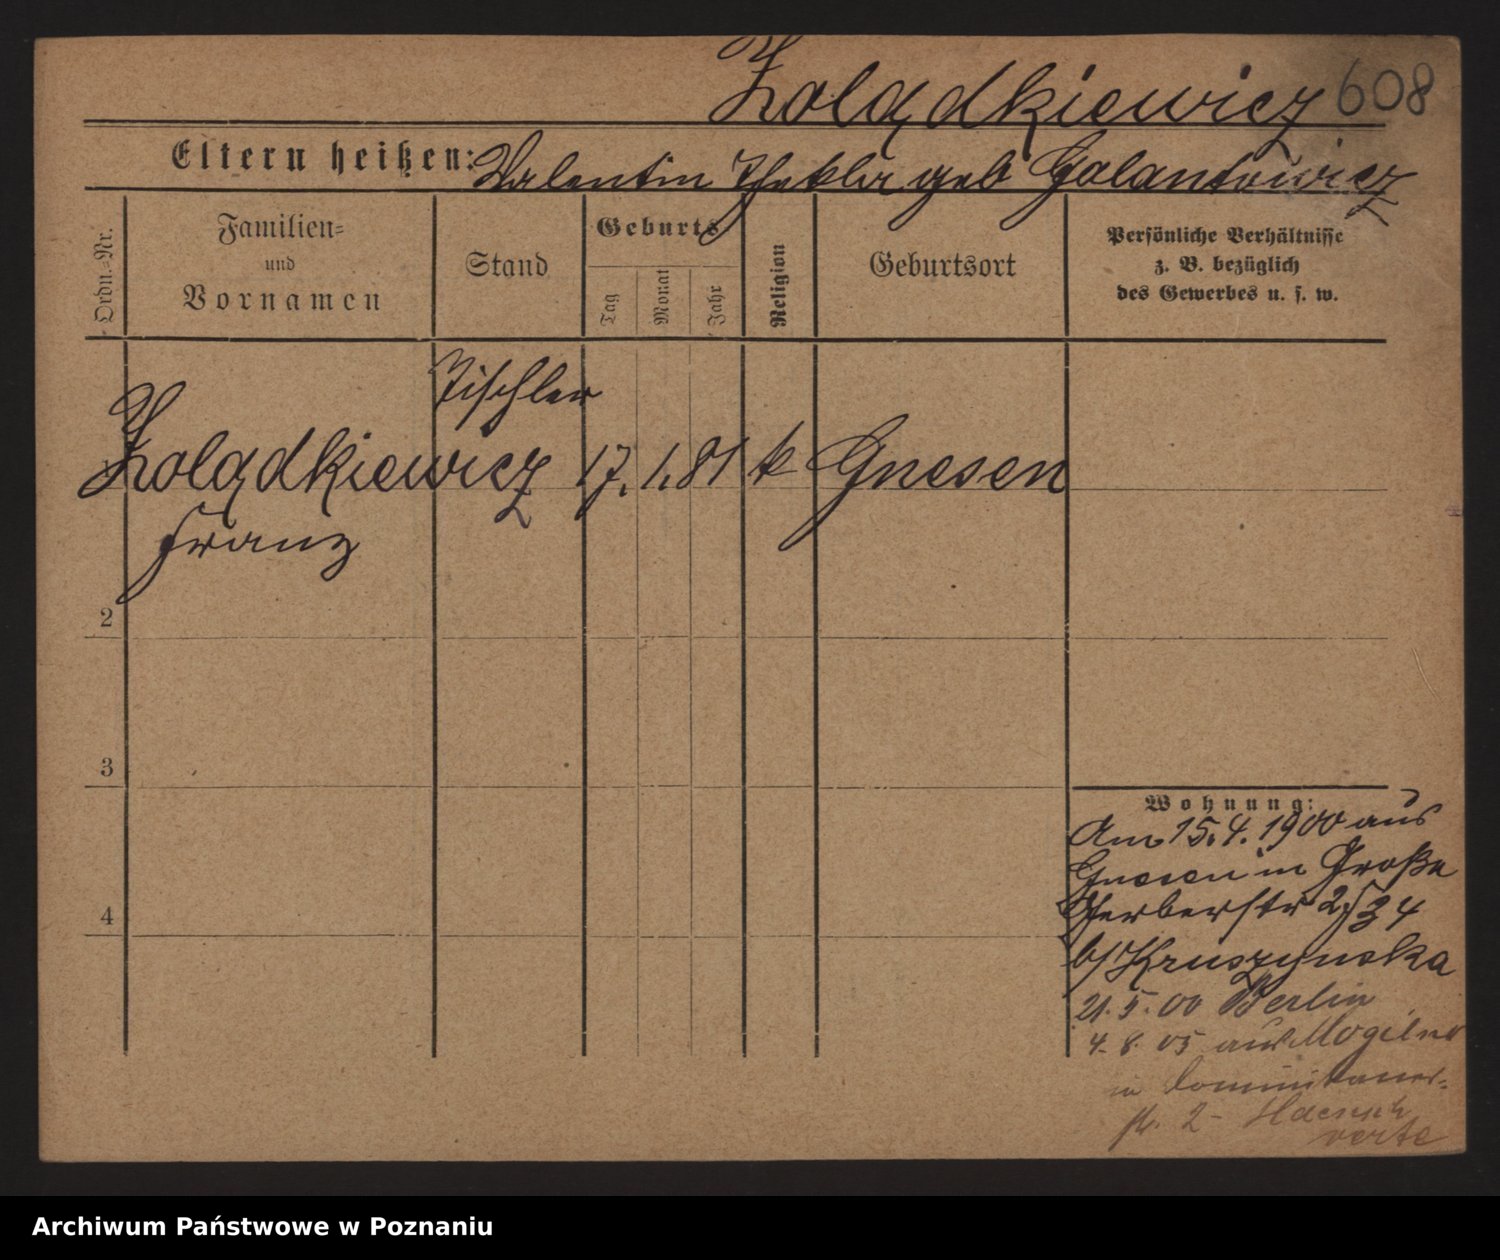 Zolądkiewicz 608
Eltern heißen: Valentin Thekla geb Galantowicz
Ordn.-Nr.
Familien-
und
Vornamen
Stand
Geburts
Tag
Monat
Jahr
Religion
Geburtsort
Persönliche Verhältnisse
z. B. bezüglich
des Gewerbes u. s. w.
Tischler
Zolądkiewicz 17. 1. 81 k Gnesen
Franz
2
3
4
Wohnung:
Am 15.4.1900 aus
Gnesen in Große
Gerberstr
b/Kruszynska
21.5.00 Berlin
4.8.05 aus Mogilno
in Dominikaner-
str. 2 -
verte
Archiwum Państwowe w Poznaniu